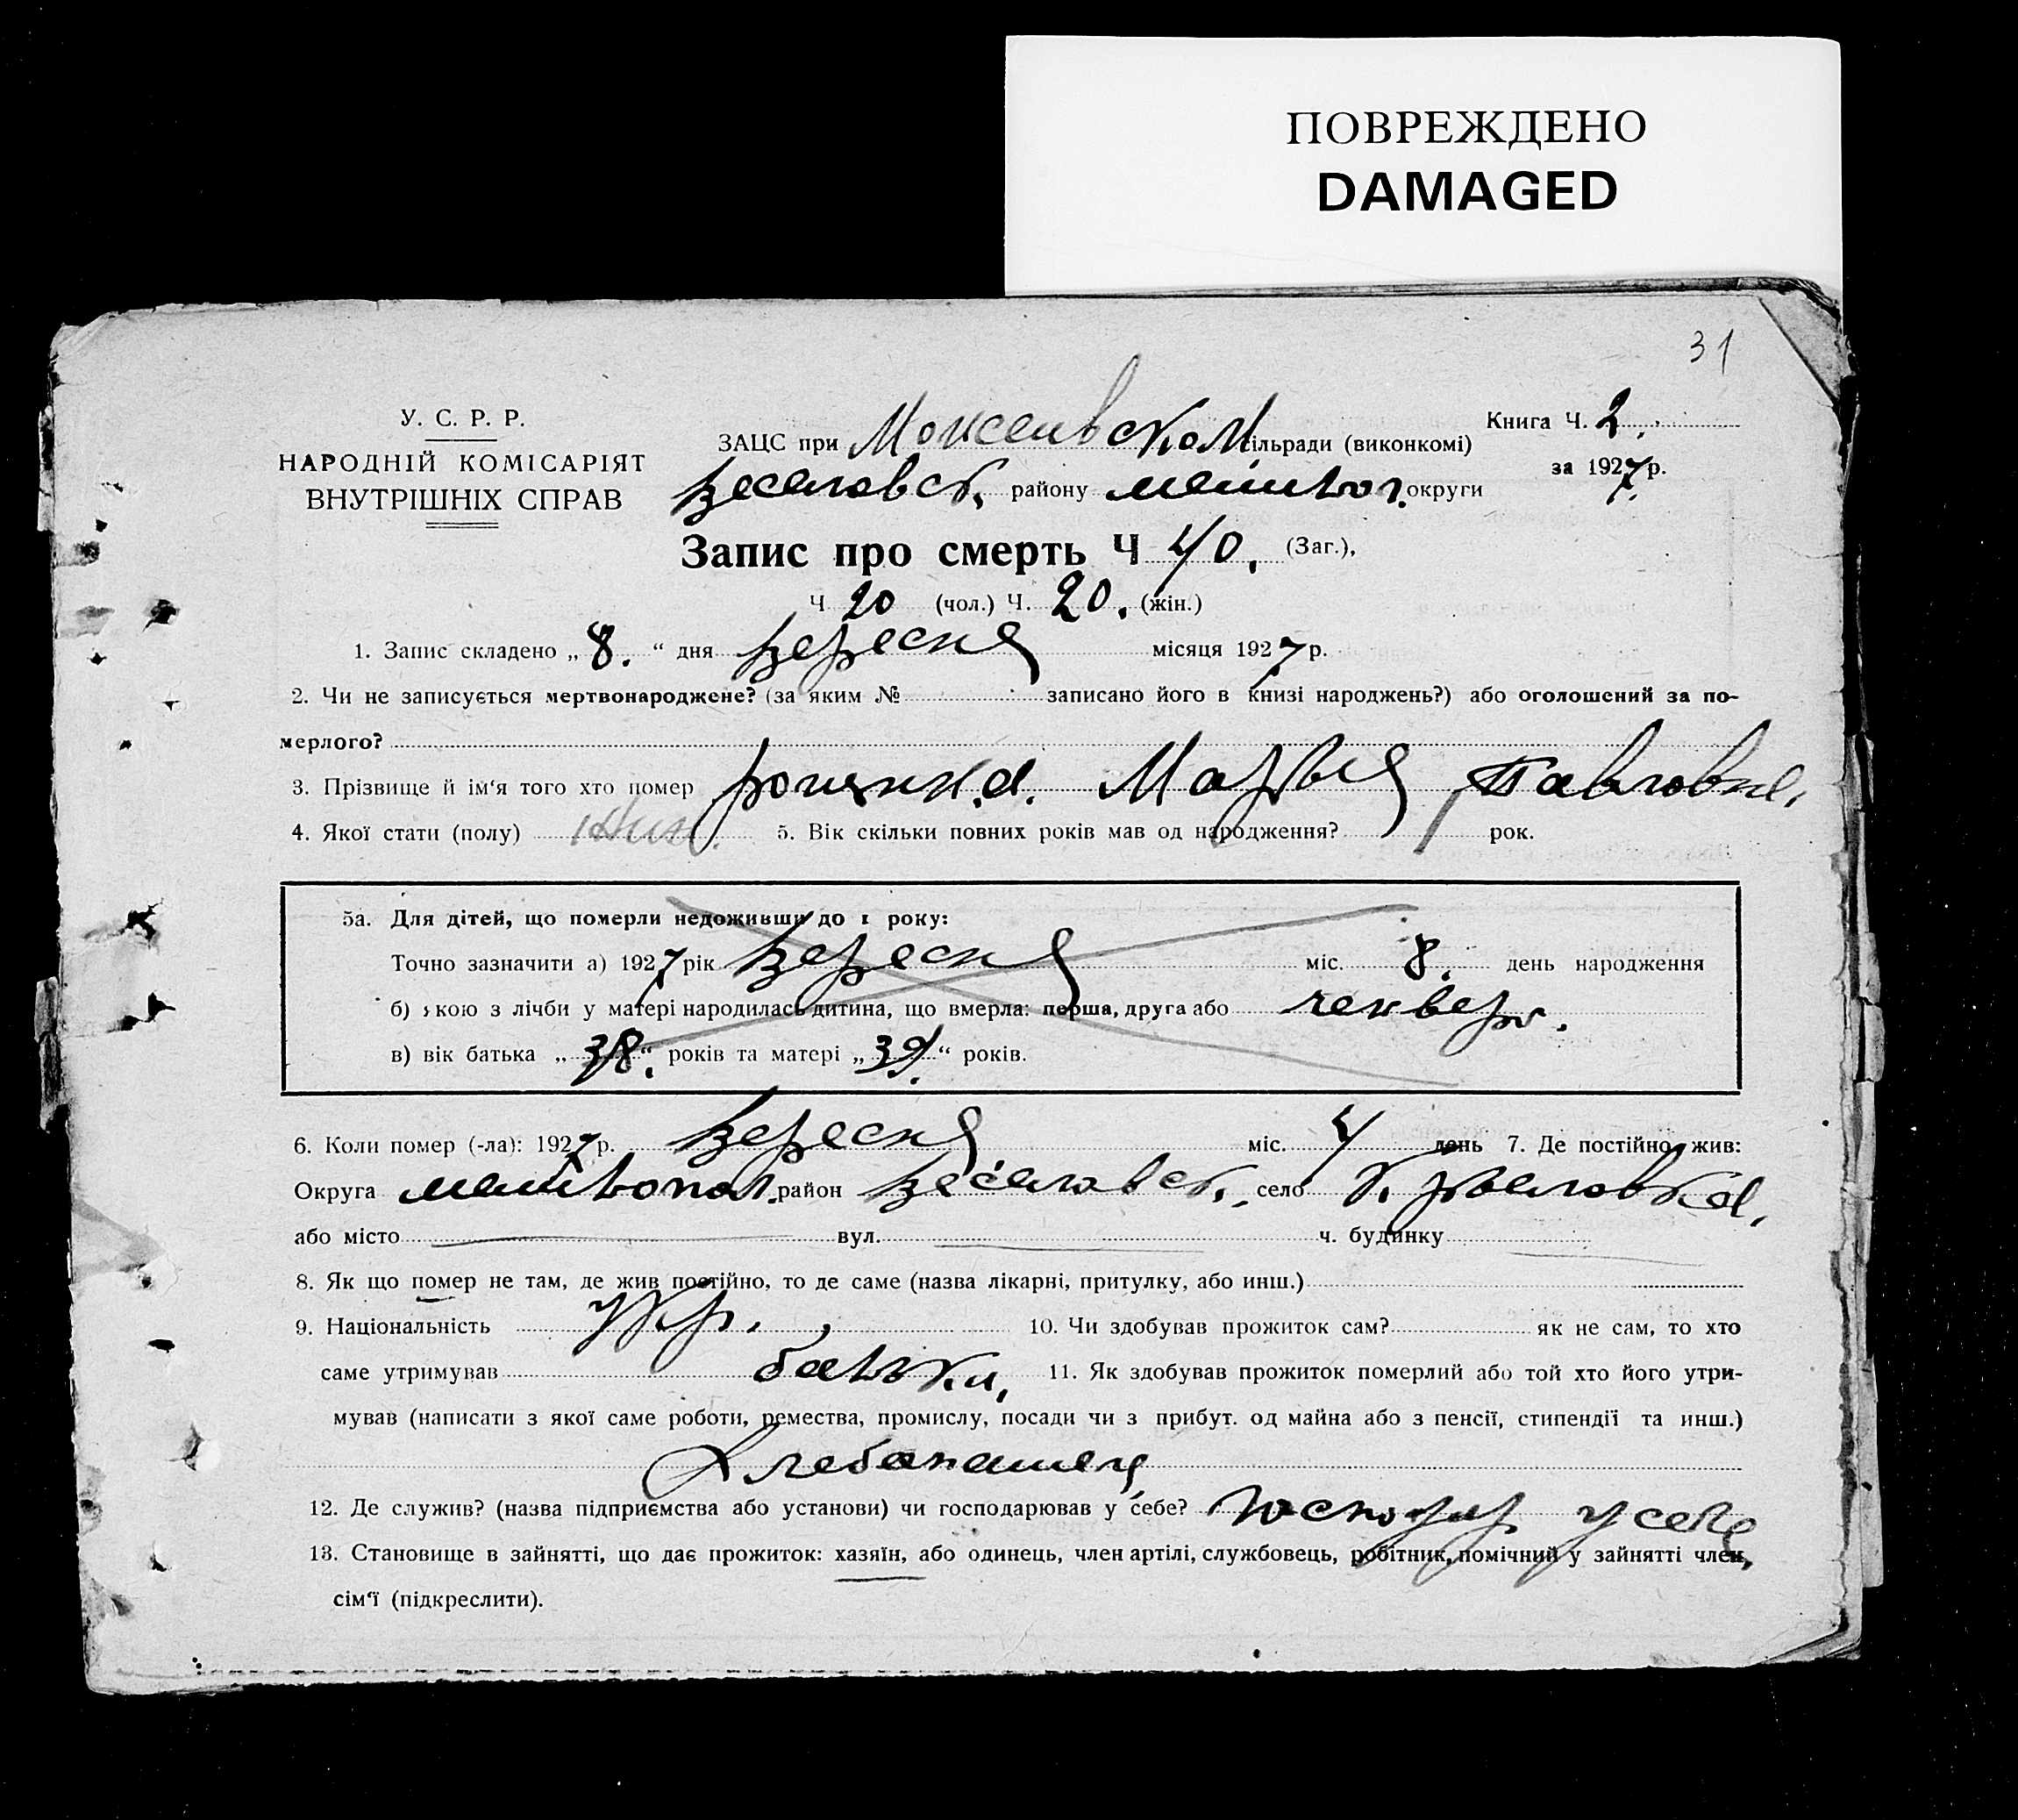 ПОВРЕЖДЕНО
DAMAGED
31
У. С. Р. Р.
НАРОДНІЙ КОМІСАРІЯТ
ВНУТРІШНІХ СПРАВ
ЗАЦС при ільраді (виконкомі)
Книга Ч. 2.
за 1927 р.
Веселовск. району мелитоп. округи
Запис про смерть Ч 40. (Заг.),
Ч 20 (чол.) Ч. 20. (жін.)
1. Запис складено „ 8. “ дня вересня місяця 1927 р.
2. Чи не записується мертвонароджене? (за яким № записано його в книзі народжень?) або оголошений за по-
мерлого?
3. Прізвище й ім‘я того хто помер Марья Павловна.
4. Якої стати (полу) жин. 5. Вік скільки повних років мав од народження? 1 рок.
5а. Для дітей, що померли недоживши до 1 року:
Точно зазначити а) 1927 рік вересня міс. 8. день народження
б) якою з лічби у матері народилась дитина, що вмерла: перша, друга або
в) вік батька „ 38. “ років та матері „ 39. “ років.
6. Коли помер (-ла): 1927 р. вересня міс. 4 день 7. Де постійно жив:
Округа мелитопол. район Веселовск. село
або місто вул. ч. будинку
8. Як що помер не там, де жив постійно, то де саме (назва лікарні, притулку, або инш.)
9. Національність укр. 10. Чи здобував прожиток сам? як не сам, то хто
саме утримував батьки, 11. Як здобував прожиток померлий або той хто його утри-
мував (написати з якої саме роботи, ремества, промислу, посади чи з прибут. од майна або з пенсії, стипендії та инш.)
Хлебопашец
12. Де служив? (назва підприємства або установи) чи господарював у себе? господар у себе
13. Становище в зайнятті, що дає прожиток: хазяїн, або одинець, член артілі, службовець, робітник, помічний у зайнятті член,
сім‘ї (підкреслити).